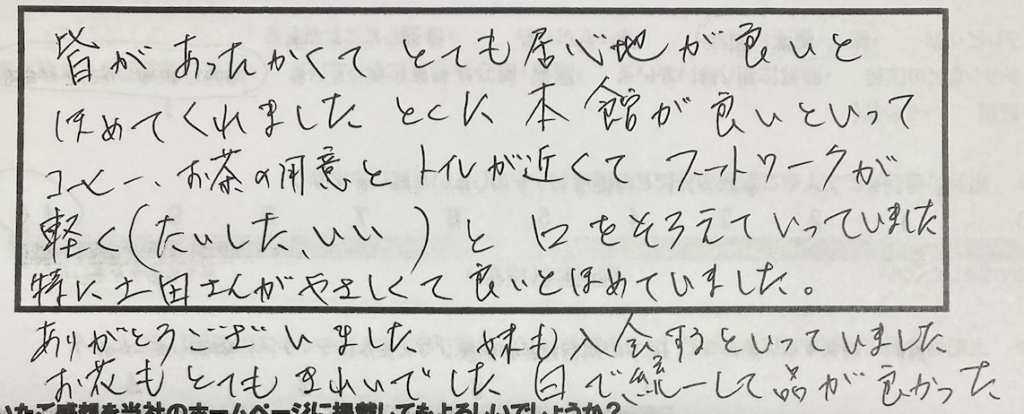 皆があったかくてとても居心地が良いと
ほめてくれました とくに本館が良いといって
コーヒー、お茶の用意とトイレが近くてフートワークが
軽く(たいしたいい)と口をそろえていっていました
特に土田さんがやさしくて良いとほめていました。
ありがとうございました 妹も入会するといっていました
お花もとてもきれいでした 白で統一して品が良かった
いたご感想を当社のホームページに掲載してもよろしいでしょうか?